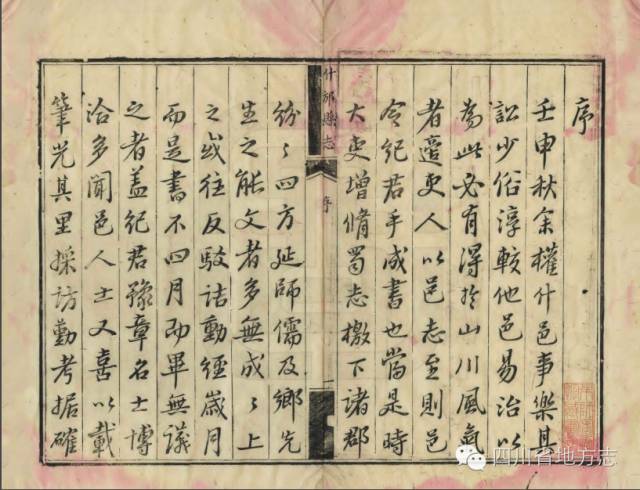 序
壬申秋余權什邑事樂其
訟少俗淳較他邑易治以
為此必有得於山川風氣
者適吏人以邑志至則邑
令紀君手成書也當是時
大吏增脩蜀志檄下諸郡
什邡縣志
序
一
紛〻四方延師儒及鄉先
生之能文者多無成〻上
之或往反駁詰動經歲月
而是書不四月即畢無議
之者蓋紀君豫章名士博
洽多聞邑人士又喜以載
筆光其里採訪勤考据確
四川省地方志